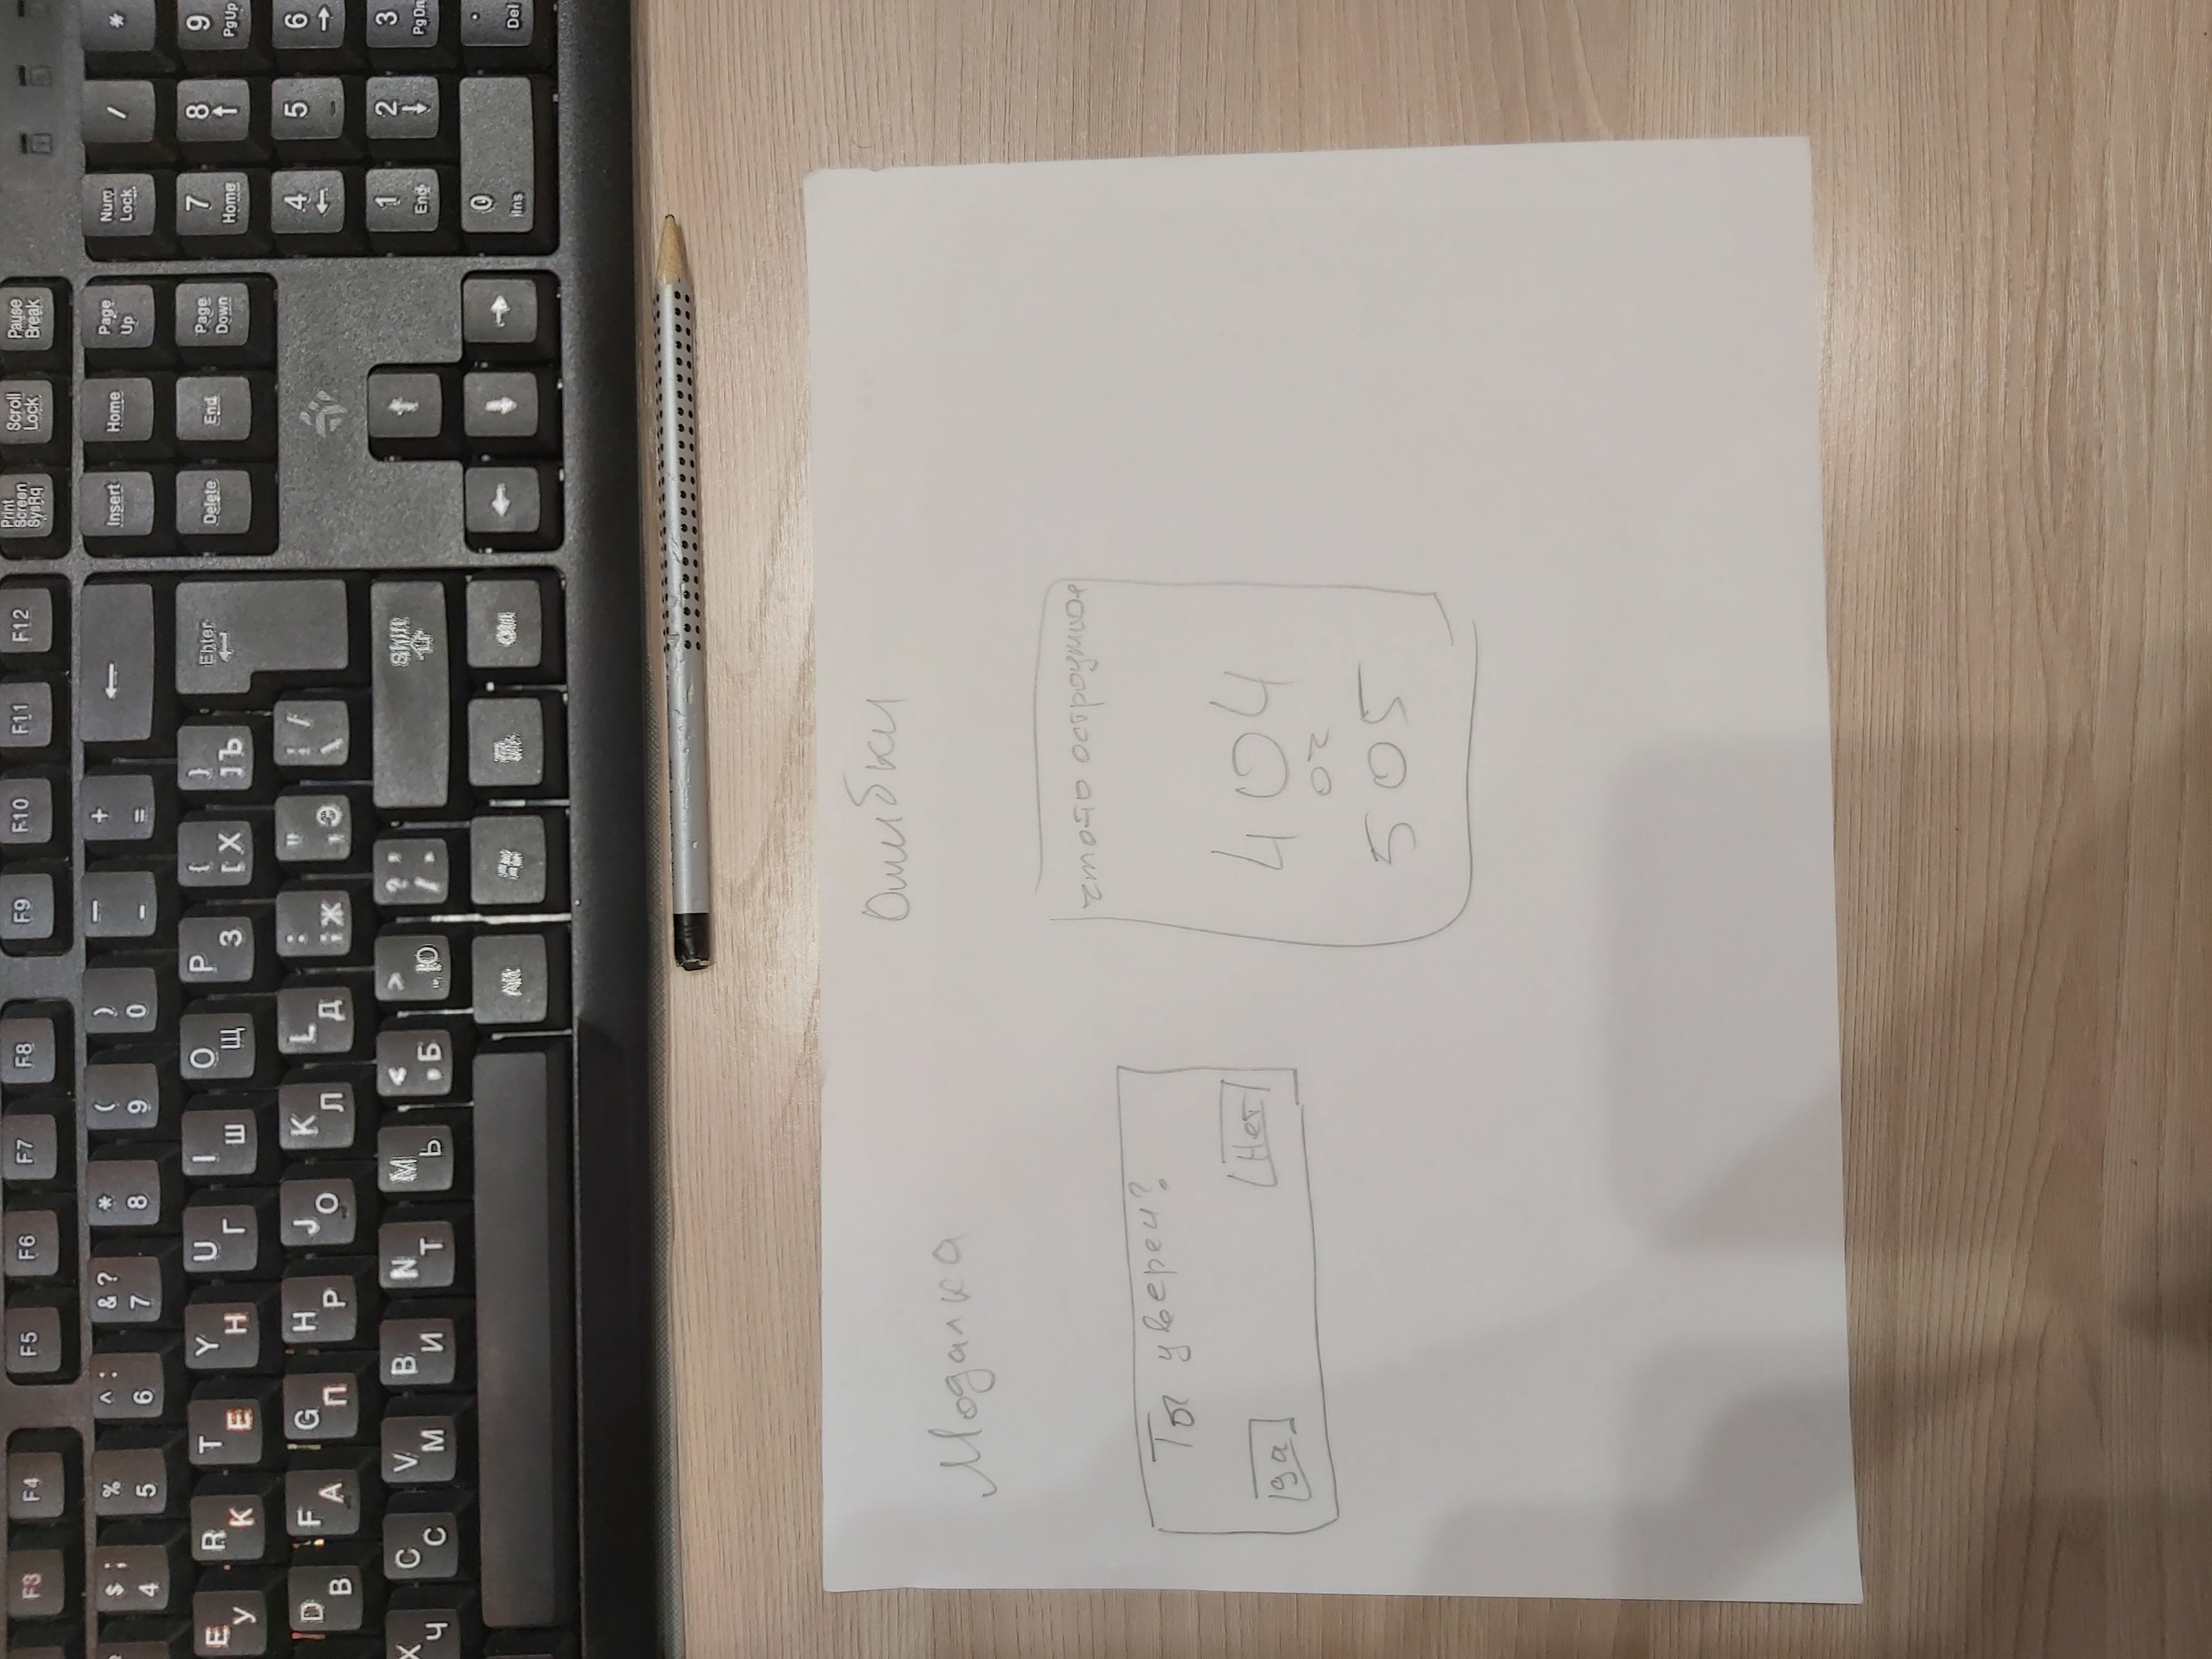 F3 F4 F5 F6 F7 F8 F9 F10 F11 F12 Print Screen SysRq Scroll Lock Pause Break
$ ; 4 % 5 ^ : 6 & ? 7 * 8 ( 9 ) 0 — - + = ← Insert Home Page Up Num Lock / *
E У R К T Е Y Н U Г I Ш O Щ P З { [ Х } ] Ъ Enter Delete End Page Down 7 Home 8 ↑ 9 PgUp
D В F А G П H Р J О K Л L Д : ; Ж " ' Э | / \ 4 ← 5 6 →
X Ч C С V М B И N Т M Ь < , Б > . Ю ? , / . Shift ↑ 1 End 2 ↓ 3 PgDn
Alt Ctrl ← ↓ → 0 Ins . Del
Ошибки
Модалка
чтото остроумное
Ты уверен?
да Нет
404
or
505